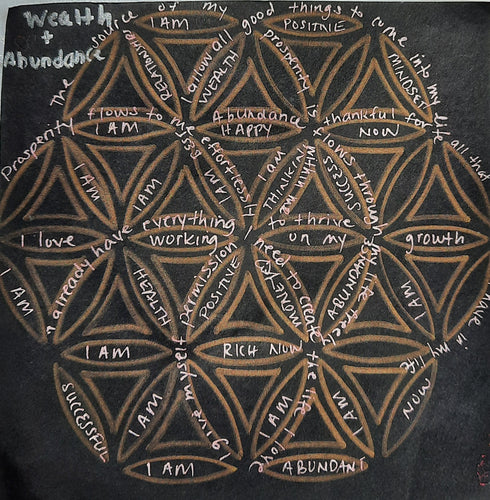 Wealth
+
Abundance
The source of my
I AM
I allow all good things to come into my life
POSITIVE
RELATIONSHIP
WEALTH
PROSPERITY
MINDSET
Prosperity flows to me effortlessly
I AM
Abundance
HAPPY
is
thankful for all that
NOW
I AM
I AM
I AM
I AM
THINKING
within me
SUCCESS
flows through my life freely
I love
I already have everything I need to create the life I love
working
to thrive
on my
growth
I AM
HEALTH
I give myself permission
POSITIVE
MONEY
ABUNDANCE
I AM
I love in my life
I AM
RICH NOW
SUCCESSFUL
I AM
I AM
I AM
NOW
I AM
ABUNDANT